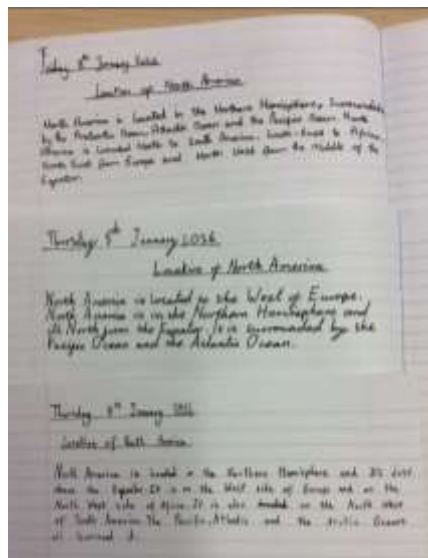 Friday 8th January 2016
Location of North America
North America is located in the Northern Hemisphere, Surrounded
by the Antarctic Ocean, Atlantic Ocean and the Pacific Ocean. North
America is located North to South America, South-East to Africa,
North East from Europe and North West from the middle of the
Equator.
Thursday 9th January 2016
Location of North America
North America is located to the West of Europe.
North America is in the Northern Hemisphere and
is North from the Equator. It is surrounded by the
Pacific Ocean and the Atlantic Ocean.
Thursday January 2016
Location of North America
North America is located in the Northern Hemisphere and It's just
above the Equator. It is on the West side of Europe and on the
North West side of Africa. It is also located on the North West
of South America. The Pacific, Atlantic and the Arctic Oceans
all surround it.